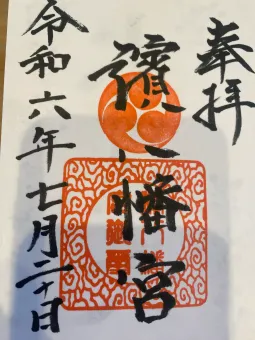 奉拝
濱八幡宮
令和六年七月二十日